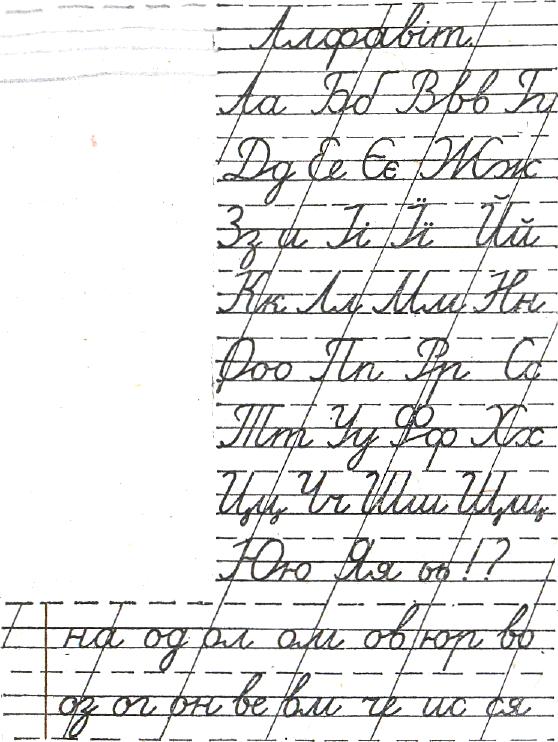 Алфавіт.
Аа Бб Ввв Гг
Дд Ее Єє Жж
Зз и Іі Її Йй
Кк Лл Мм Нн
Ооо Пп Рр Сс
Тт Уу Фф Хх
Цц Чч Шш Щщ
Юю Яя ьь!?
на од ол ом ов юр во
оз ог он ве вм че ис ся